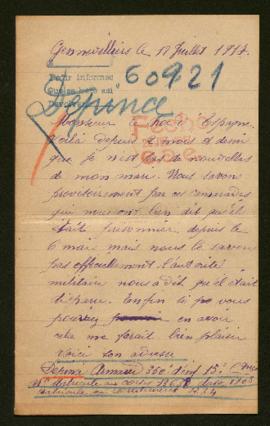 Gennevilliers le 18 Juillet 1917.
Pour informer
60921
Depince
Monsieur le Roi d'Espagne
Voilà depuis 2 mois et demi
que je n'est pas de nouvelles
de mon mari. Nous savons
provisoirement par ces camarades
qui nous ont bien dit qu'il
était prisonnier depuis le
6 mai mais nous le savons
pas officiellement l'autorité
militaire nous a dit qu'il était
disparu. Enfin si vous
pouvez en avoir
cela me ferait bien plaisir
Voici son adresse
Depince 360e inf 15e